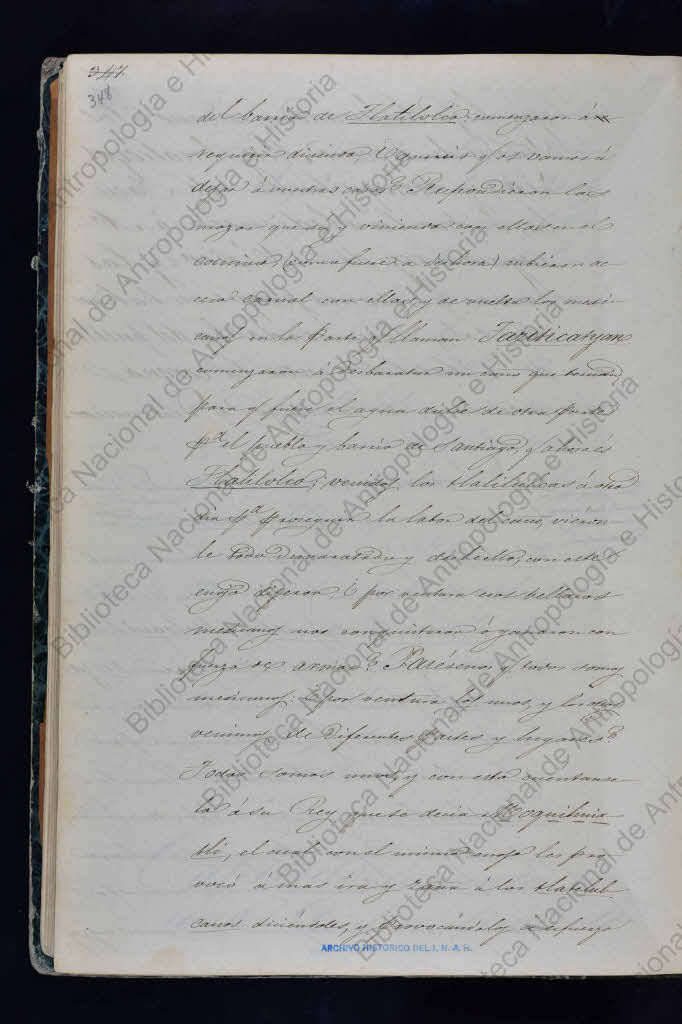 347
348
del barrio de Tlatilolco comenzaron á
requerir diciendo, Quereis q os vamos á
dejar á vuestras casas? Respondieron las
mozas que sí, y viniendo con ellas en el
camino, (como fuese a deshora) tubieron ac
ceso carnal con ellas, y de vuelta los mexi-
canos en la parte q llaman
comenzaron á desbaratar un caño que tenian
para q fuese el agua dulce de otra parte
pa el pueblo y barrio de Santiago, q ahora es
Tlatilolco; venidos los tlatilulcas á otro
dia pa proseguir la labor del caño, vieron-
le todo desbaratado y deshecho, con este
enojo dijeron, É por ventura esos bellacos
mexicanos nos conquistaron ó ganaron con
fuerza de armas? Paréceme q todos somos
mexicanos. É por ventura los unos, y los otros
venimos de diferentes Partes y lugares?
Todos somos unos, y con esto cuentanse-
lo á su Rey que se decia Moquihuix
tli, el cual con el mismo enojo los pro
vocó á mas ira y zaña á los tlatilul-
canos diciéndoles, y provocándolos a esfuerzo
ARCHIVO HISTORICO DEL I. N. A. H.
Biblioteca Nacional de Antropología e Historia